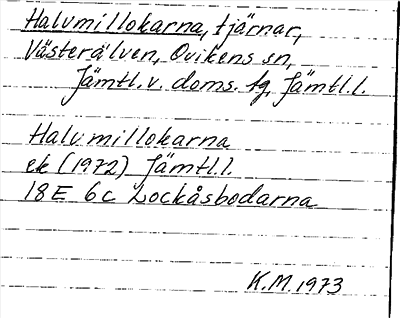 Halvmillokarna, tjärnar,
Västerälven, Ovikens sn,
Jämtl. v. doms. tg, Jämtl. l.
Halvmillokarna
ek (1972) Jämtl. l.
18E 6c Lockåsbodarna
K.M. 1973